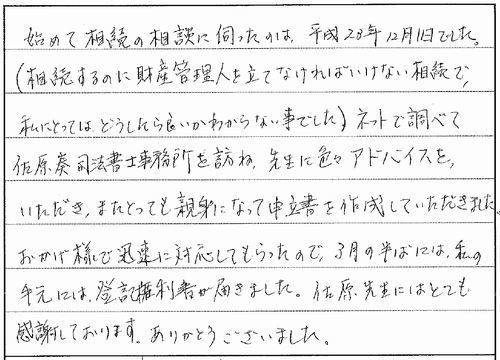 始めて相続の相談に伺ったのは、平成28年12月1日でした。
(相続するのに財産管理人を立てなければいけない相続で、
私にとってはどうしたら良いかわからない事でした)ネットで調べて
佐原奏司法書士事務所を訪ね、先生に色々アドバイスを、
いただき、またとっても親身になって申立書を作成していただきました。
おかげ様で迅速に対応してもらったので、3月の半ばには、私の
手元には、登記権利書が届きました。佐原先生にはとても
感謝しております。ありがとうございました。